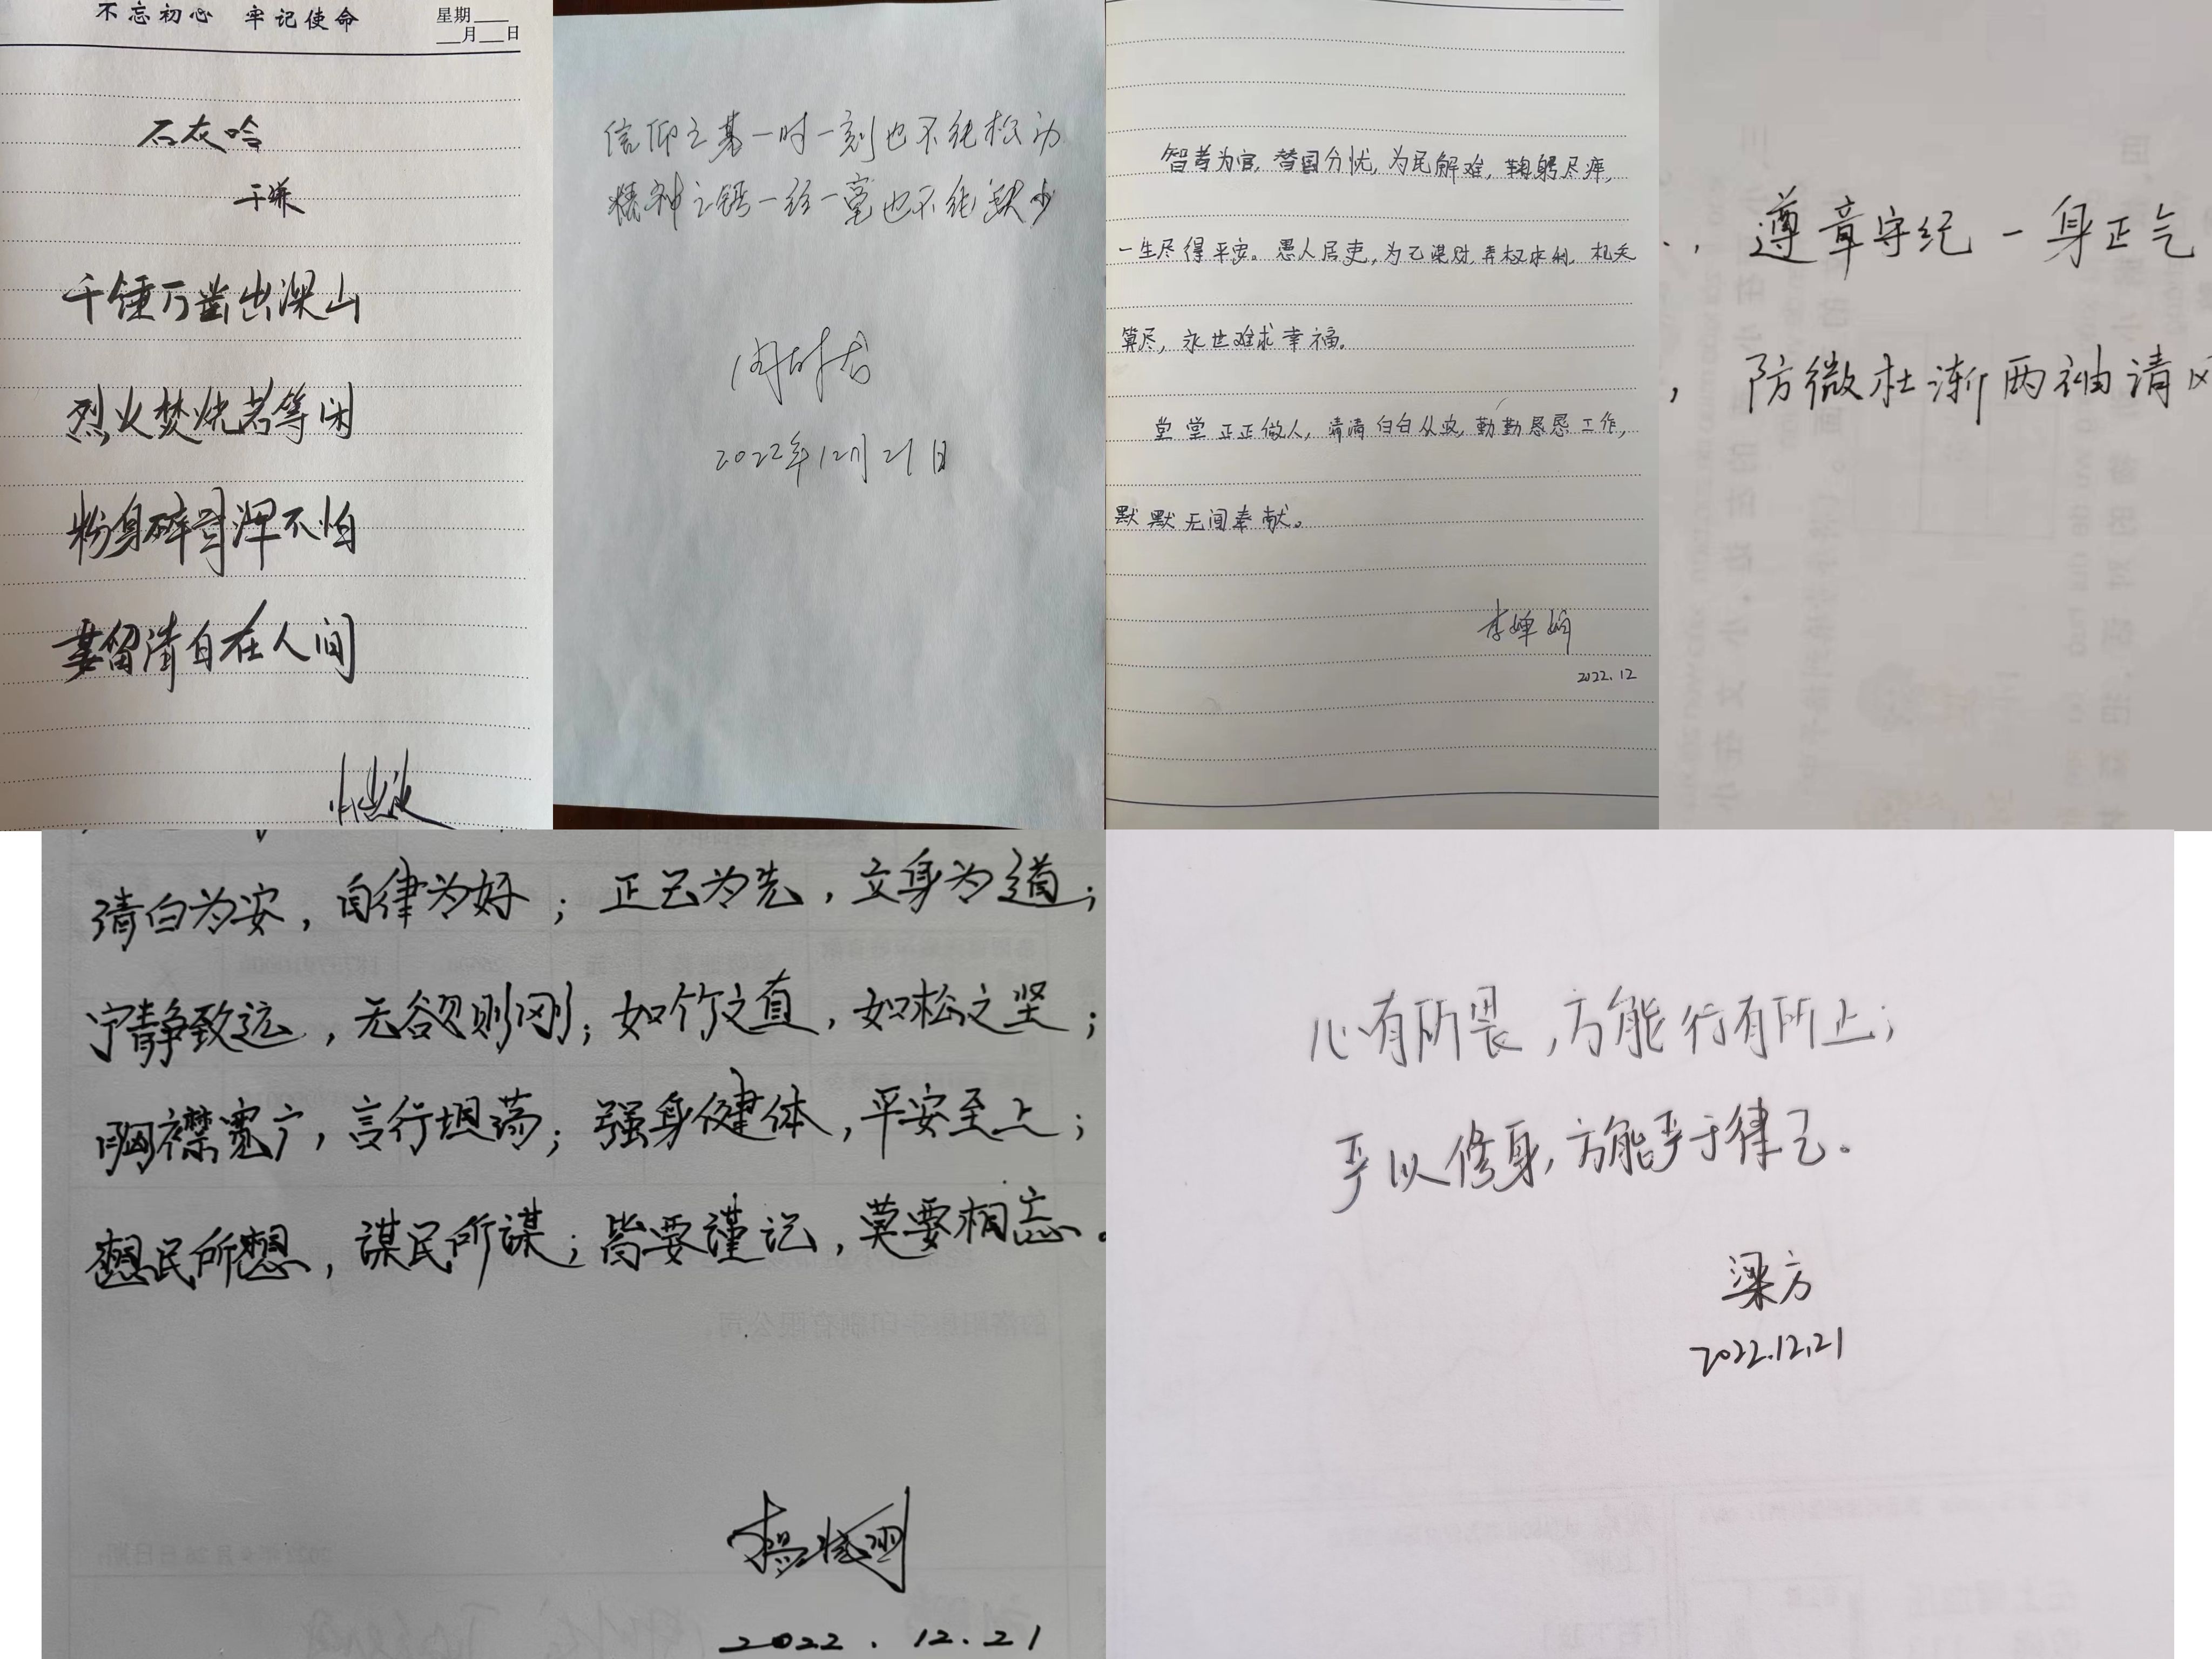 不忘初心 牢记使命
星期
月 日
石灰吟
于谦
千锤万凿出深山
烈火焚烧若等闲
粉身碎骨浑不怕
要留清白在人间
信仰之基一时一刻也不能松动
精神之钙一丝一毫也不能缺少
2022年12月21日
智者为官,替国分忧,为民解难,鞠躬尽瘁,
一生尽得平安。愚人居吏,为己谋财,弄权求利,机关
算尽,永世难求幸福。
堂堂正正做人,清清白白从政,勤勤恳恳工作,
默默无闻奉献。
李婵娟
2022.12
遵章守纪一身正气
,防微杜渐两袖清风
清白为安,自律为好;正己为先,立身为道;
宁静致远,无欲则刚;如竹之直,如松之坚;
胸襟宽广,言行坦荡;强身健体,平安至上;
想民所想,谋民所谋;皆要谨记,莫要相忘。
2022.12.21
心有所畏,方能行有所止;
严以修身,方能严于律己。
梁方
2022.12.21